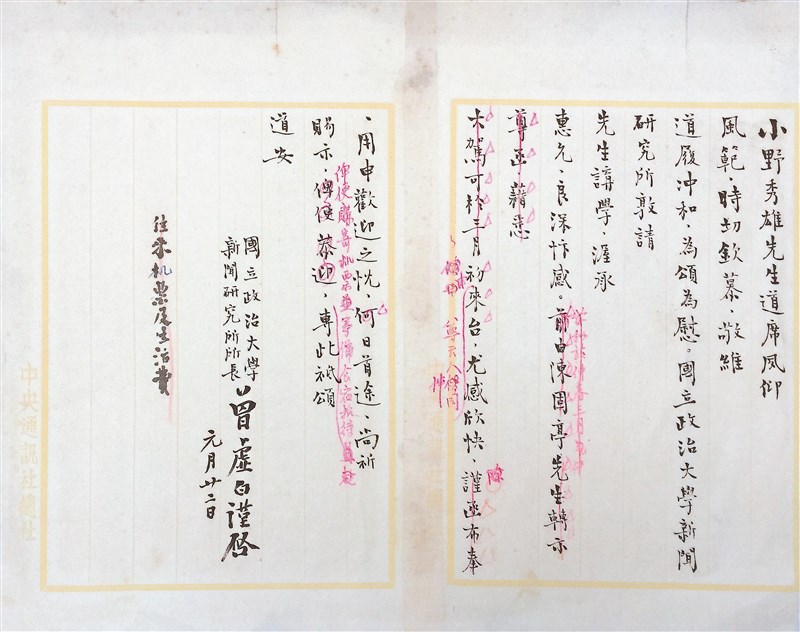 小野秀雄先生道席風仰
風範、時切欽慕、敬維
道履沖和、為頌為慰。國立政治大學新聞
研究所敦請
先生講學、渥承
惠允、良深忭感。前由陳固亭先生轉示
尊函藉悉
大駕可於三月初來台、尤感欣快、謹函布奉
、用申歡迎之忱、何日首途、尚祈
俾便購寄机票並準備食宿招待
賜示、俾便恭迎、專此祗頌
道安
國立政治大學
新聞研究所所長
曾虛白謹啓
元月廿二日
往來机票及生活費
中央通訊社總社